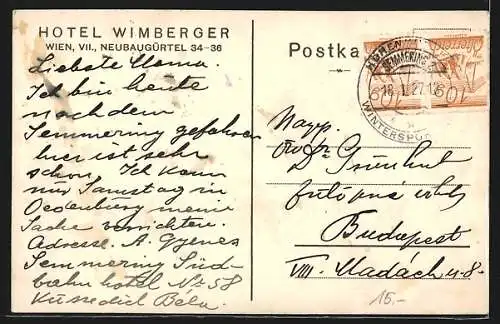 HOTEL WIMBERGER
WIEN, VII., NEUBAUGÜRTEL 34-36
Liebste Mama.
Ich bin heute
nach dem
Semmering gefahren
hier ist sehr
schön. Ich kann
nur Samstag in
Oedenburg meine
Sache verrichten.
Adresse. A. Gyenes
Semmering Süd-
bahn hotel No 58
Küsse dich Bela.
Postka
SEMMERING
18. I. 27
WINTERSPO
10g
10g
Nagys.
Dr Grünhut
Budapest
VIII. Madách u. 8.
15,-